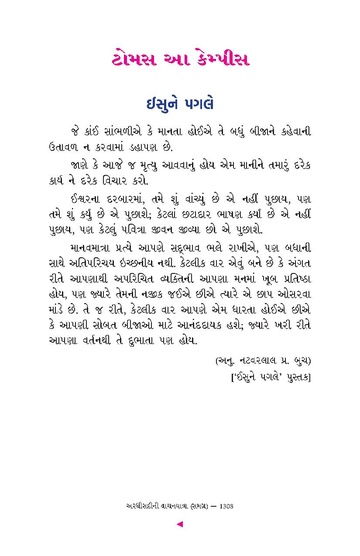 ટોમસ આ કેમ્પીસ
ઈસુને પગલે
જે કાંઈ સાંભળીએ કે માનતા હોઈએ તે બધું બીજાને કહેવાની
ઉતાવળ ન કરવામાં ડહાપણ છે.
જાણે કે આજે જ મૃત્યુ આવવાનું હોય એમ માનીને તમારું દરેક
કાર્ય ને દરેક વિચાર કરો.
ઈશ્વરના દરબારમાં, તમે શું વાંચ્યું છે એ નહીં પુછાય, પણ
તમે શું કર્યું છે એ પુછાશે; કેટલાં છટાદાર ભાષણ કર્યાં છે એ નહીં
પુછાય, પણ કેટલું પવિત્રા જીવન જીવ્યા છો એ પુછાશે.
માનવમાત્રા પ્રત્યે આપણે સદ્ભાવ ભલે રાખીએ, પણ બધાની
સાથે અતિપરિચય ઇચ્છનીય નથી. કેટલીક વાર એવું બને છે કે અંગત
રીતે આપણાથી અપરિચિત વ્યક્તિની આપણા મનમાં ખૂબ પ્રતિષ્ઠા
હોય, પણ જ્યારે તેમની નજીક જઈએ છીએ ત્યારે એ છાપ ઓસરવા
માંડે છે. તે જ રીતે, કેટલીક વાર આપણે એમ ધારતા હોઈએ છીએ
કે આપણી સોબત બીજાઓ માટે આનંદદાયક હશે; જ્યારે ખરી રીતે
આપણા વર્તનથી તે દુભાતા પણ હોય.
(અનુ. નટવરલાલ પ્ર. બુચ)
[‘ઈસુને પગલે’ પુસ્તક]
અરધીસદીની વાચનયાત્રા (સમગ્ર) — 1303